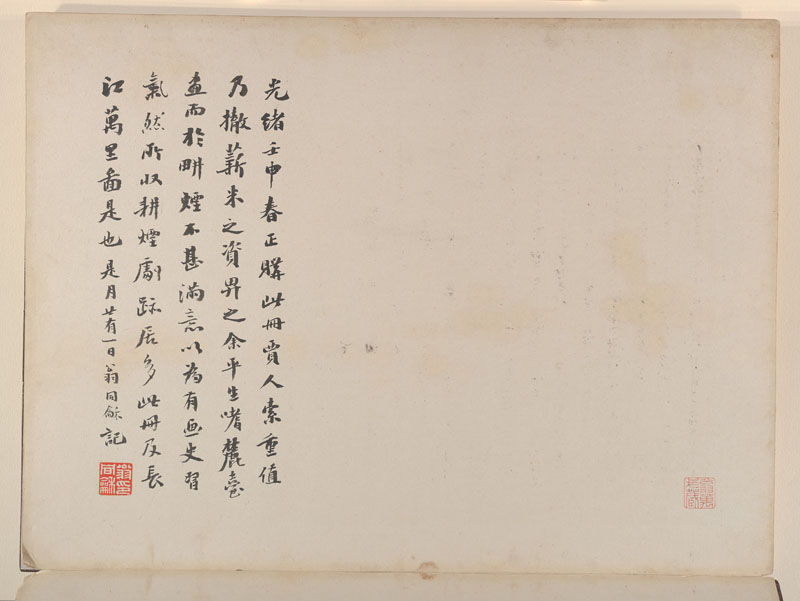 光緒壬申春正購此冊賈人索重值
乃撤薪米之資畀之余平生嗜麓臺
畫而於畊煙不甚滿意以為有画史習
氣然所收耕煙劇跡居多此冊及長
江萬里啚是也是月廿有一日翁同龢記
翁同龢印